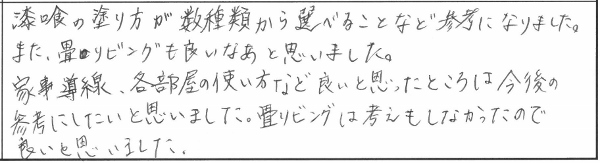 漆喰の塗り方が数種類から選べることなど参考になりました。
また、畳リビングも良いなあと思いました。
家事導線、各部屋の使い方など良いと思ったところは今後の
参考にしたいと思いました。畳リビングは考えもしなかったので
良いと思いました。